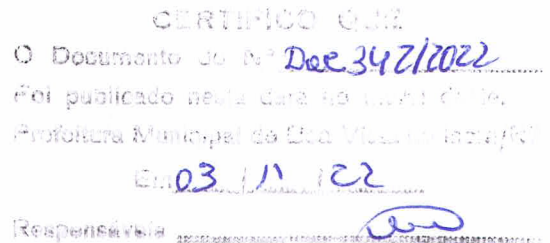 CERTIFICO QUE
O Documento do Nº Dec 342/2022
Foi publicado nesta data no
Prefeitura Municipal de Boa Vista
Em 03 / 11 / 22
Responsáveis